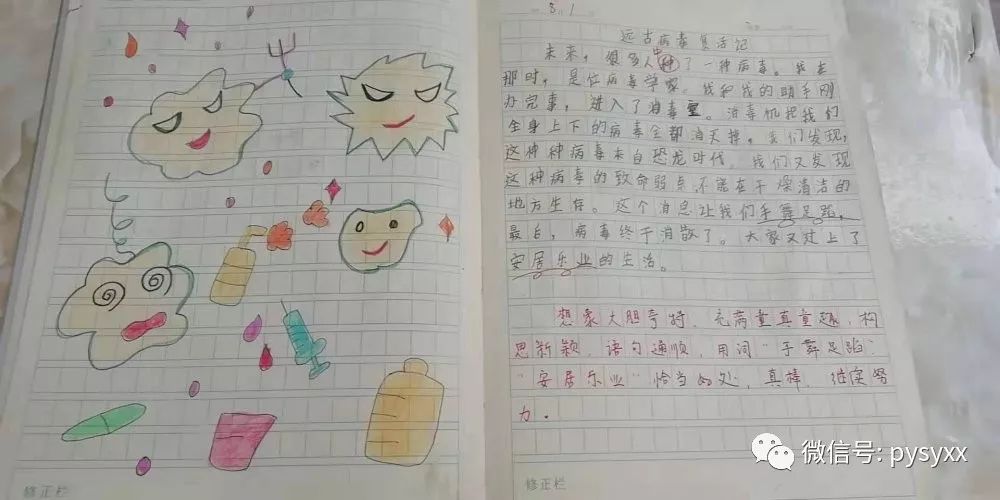 8 1
远古病毒复活记
未来，很多人中了一种病毒。我在
那时，是位病毒学家。我和我的助手刚
办完事，进入了消毒室。消毒机把我们
全身上下的病毒全都消灭掉。我们发现，
这种种病毒来自恐龙时代。我们又发现
这种病毒的致命弱点，不能在干燥清洁的
地方生存。这个消息让我们手舞足蹈，
最后，病毒终于消散了。大家又过上了
安居乐业的生活。
想象大胆夸特，充满童真童趣，构
思新颖，语句通顺，用词"手舞足蹈"
"安居乐业"恰当好处，真棒，继续努
力.
修正栏
修正栏
微信号: pysyxx